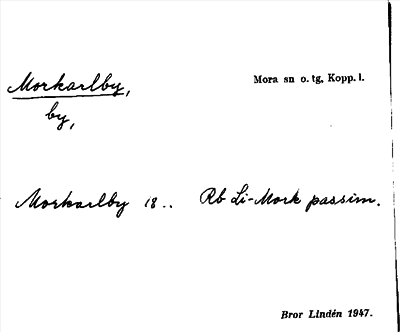 Morkarlby,
Mora sn o. tg, Kopp. l.
by,
Morkarlby 18.. Rb Li-Mork passim.
Bror Lindén 1947.